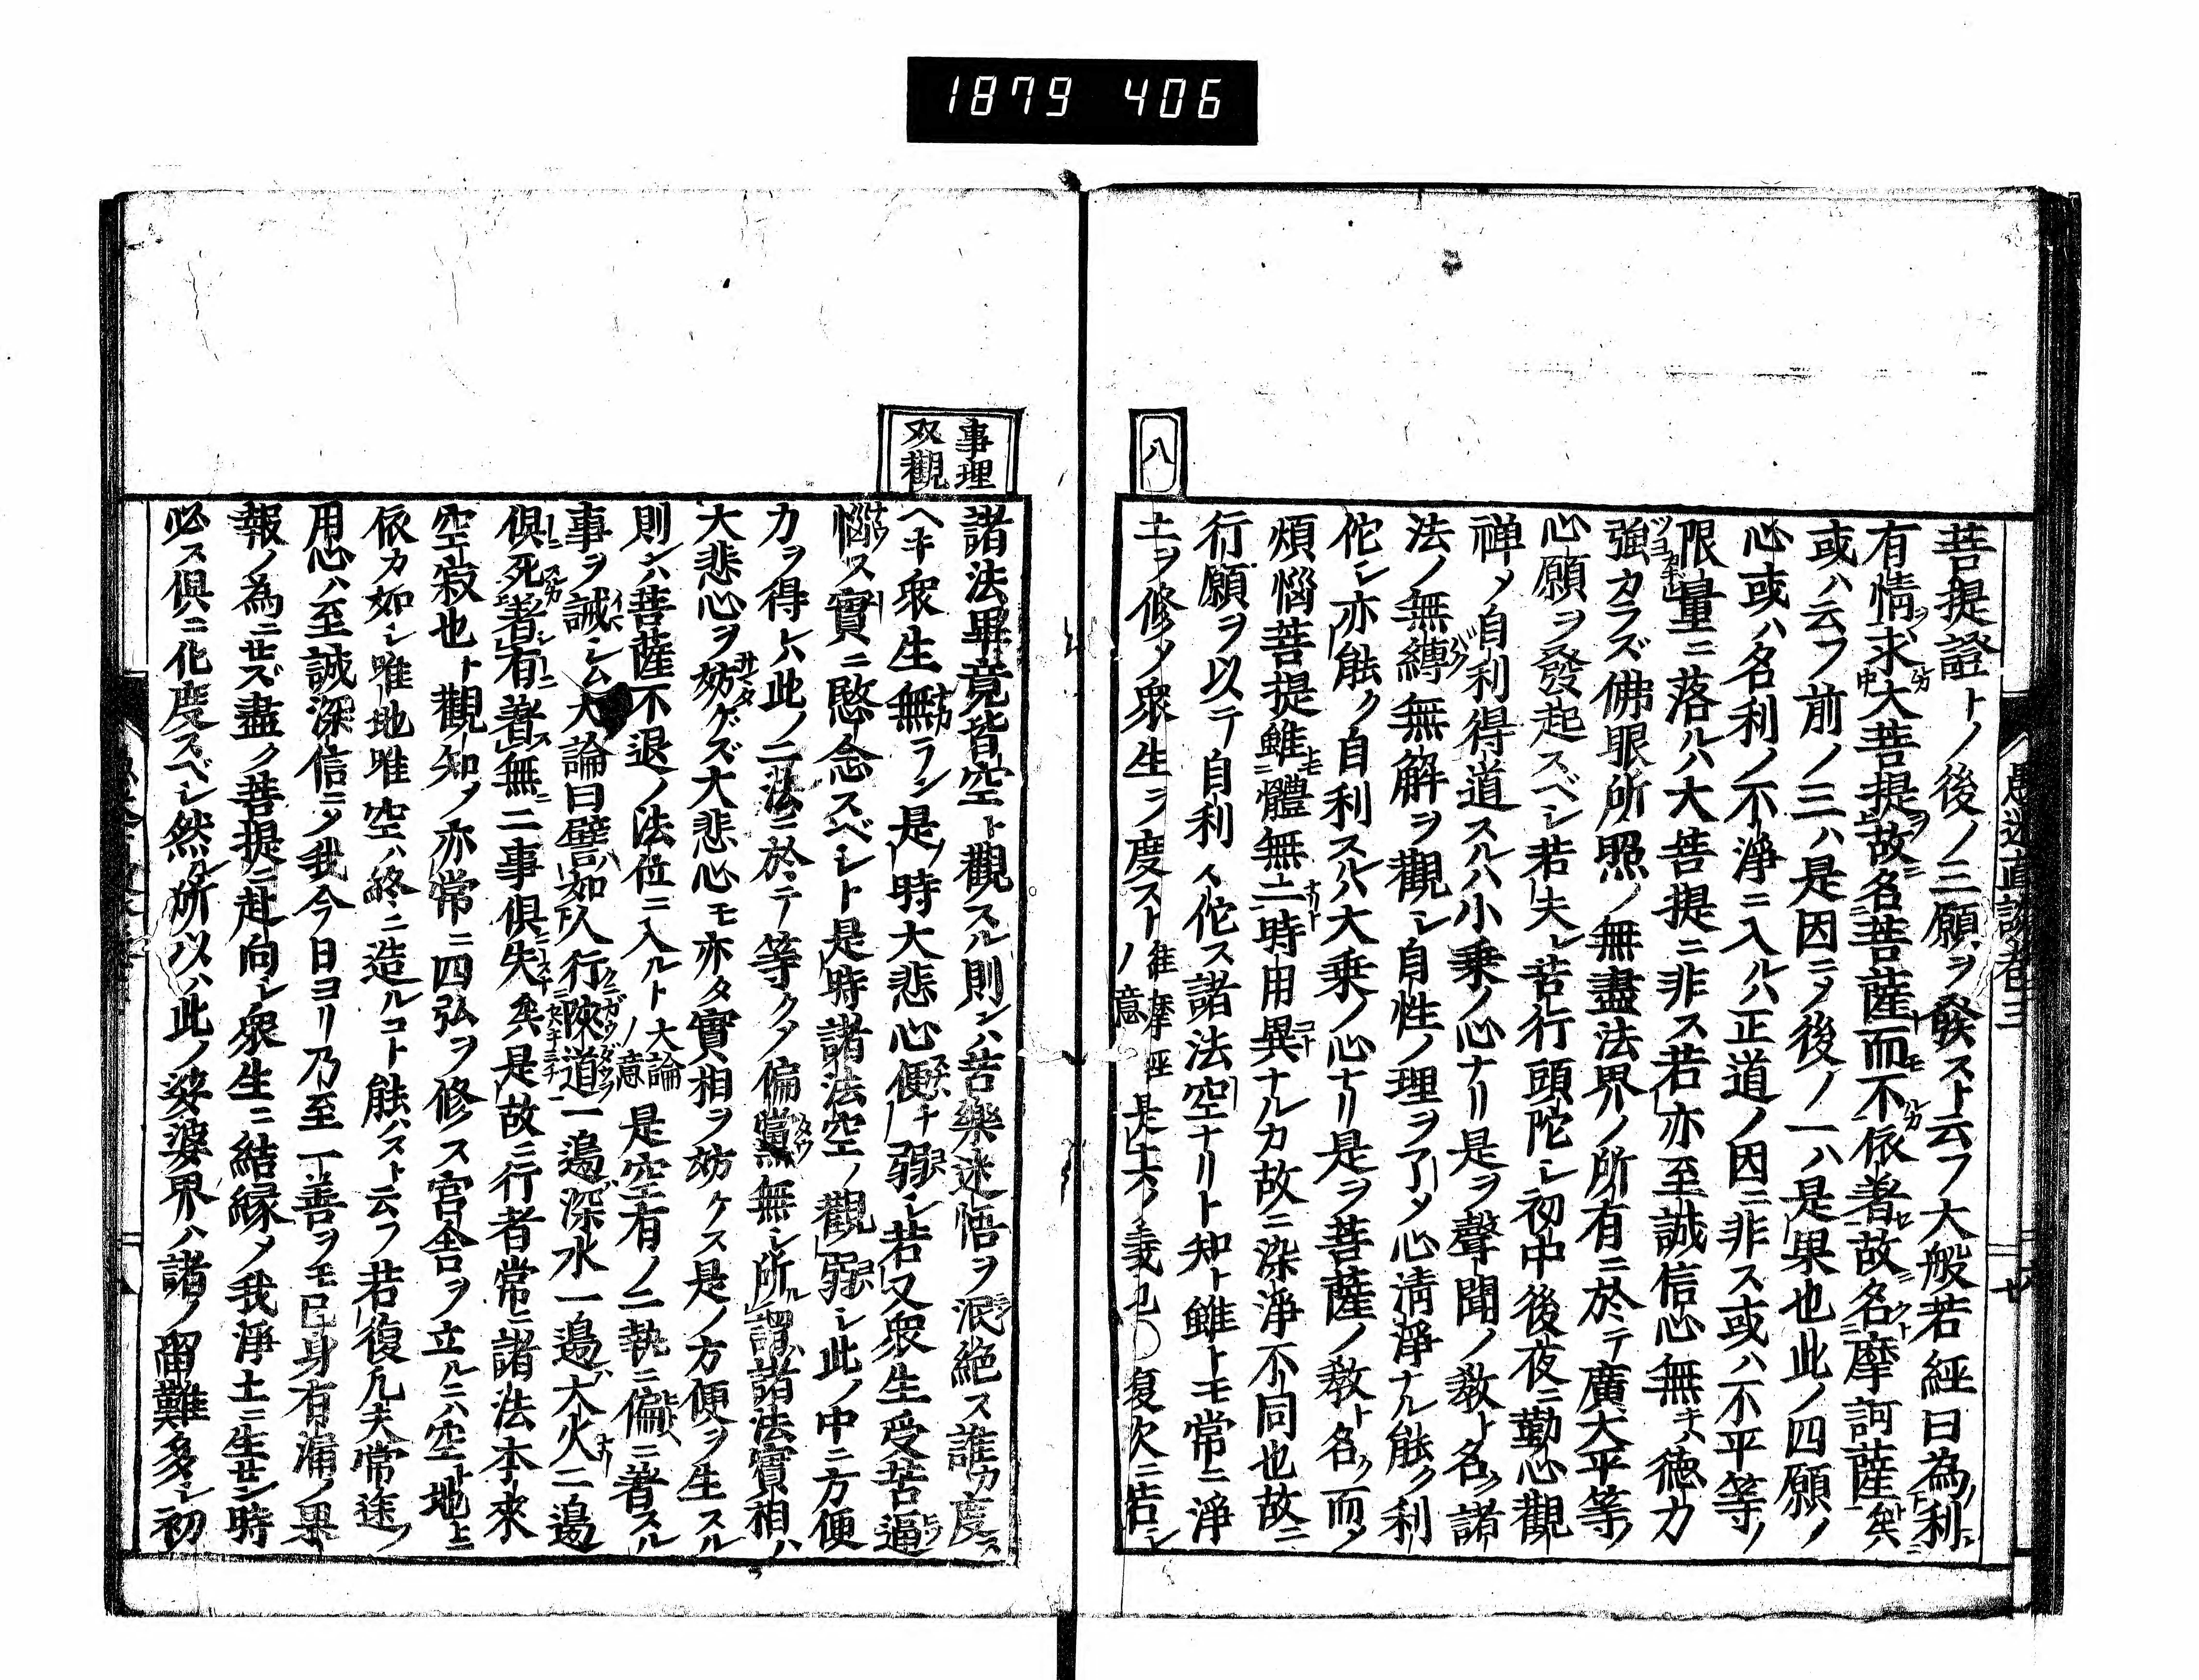 1879 406
愚迷直談巻三
八
菩提證トノ後ノ三願ヲ發スト云フ大般若經曰為利
有情求大菩提故名菩薩而不依著故名摩訶薩矣
或ハ云フ前ノ三ハ是因ニメ後ノ一ハ是果也此ノ四願ノ
心或ハ名利ノ不淨ニ入ルハ正道ノ因ニ非ス或ハ不平等ノ
限量ニ落ルハ大菩提ニ非ス若亦至誠信心無キハ德力
強カラズ佛眼所照ノ無盡法界ノ所有ニ於テ廣大平等ノ
心願ヲ發起スベシ若夫レ苦行頭陀シ初中後夜ニ勤心觀
禅メ自利得道スルハ小乗ノ心ナリ是ヲ聲聞ノ敎ト名ク諸
法ノ無縛無解ヲ觀シ自性ノ理ヲ了メ心淸淨ナル能ク利
佗シ亦能ク自利スルハ大乗ノ心ナリ是ヲ菩薩ノ敎ト名ク而メ
煩惱菩提雖體無二時用異ナルカ故ニ染淨不同也故ニ
行願ヲ以テ自利々佗ス諸法空ナリト知ト雖トモ常ニ淨
土ヲ修メ衆生ヲ度スト維摩經ノ意是夫ノ義也〇復次ニ苦シ
事理
双觀
諸法畢竟皆空ト觀スル則ンハ苦樂迷悟ヲ泯絶ス誰カ度ス
ヘキ衆生無ラン是時大悲心便チ弱シ若又衆生受苦逼
惱ス實ニ愍念スベシト是時諸法空ノ觀弱シ此ノ中ニ方便
力ヲ得レハ此ノ二法ニ於テ等クメ偏黨無シ所謂諸法實相ハ
大悲心ヲ妨ゲズ大悲心モ亦タ實相ヲ妨ケス是ノ方便ヲ生スル
則ンハ菩薩不退ノ法位ニ入ルト大論ノ意是空有ノ二執ニ偏ニ著スル
事ヲ誡シム大論曰譬如人行陜道一邉深水一邉大火二邉
倶死著有著無二事倶失矣是故ニ行者常ニ諸法本來
空寂也ト觀知メ亦常ニ四弘ヲ修ス宮舎ヲ立ルニハ空ト地上ニ
依カ如シ唯地唯空ハ終ニ造ルコト能ハスト云フ若復凡夫常途ノ
用心ハ至誠深信ニメ我今日ヨリ乃至一善ヲモ己身有漏ノ果
報ノ為ニセズ盡ク菩提ニ赴向シ衆生ニ結縁メ我淨土ニ生セン時
必ス倶ニ化度スベシ然ル所以ハ此ノ娑婆界ハ諸ノ留難多シ初